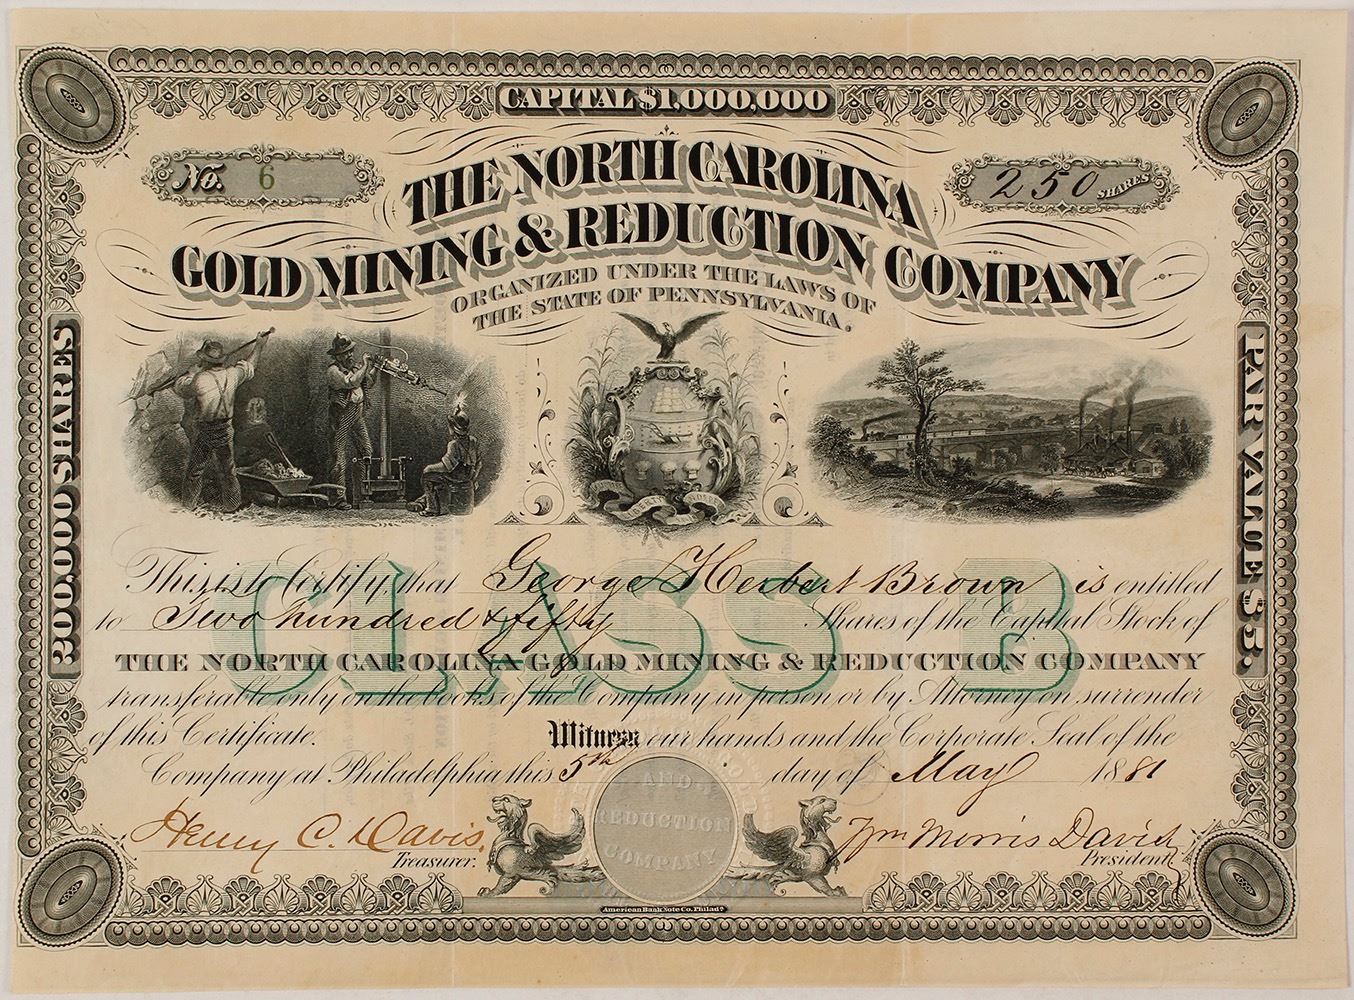 CAPITAL $1,000,000
No. 6
250 SHARES
THE NORTH CAROLINA
GOLD MINING & REDUCTION COMPANY
ORGANIZED UNDER THE LAWS OF
THE STATE OF PENNSYLVANIA.
200,000 SHARES
PAR VALUE $5.
CLASS B
This is to Certify, that George Herbert Brown is entitled
to Two hundred & fifty Shares of the Capital Stock of
THE NORTH CAROLINA GOLD MINING & REDUCTION COMPANY
transferable only on the books of the Company in person or by Attorney on surrender
of this Certificate. Witness our hands and the Corporate Seal of the
Company, at Philadelphia this 5th day of May 1881
AND
REDUCTION
COMPANY
Henry C. Davis,
Treasurer.
Wm Morris Davis
President
American Bank Note Co. Philada.